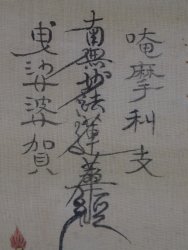 唵摩利支
南無妙法蓮華經
曳娑婆賀